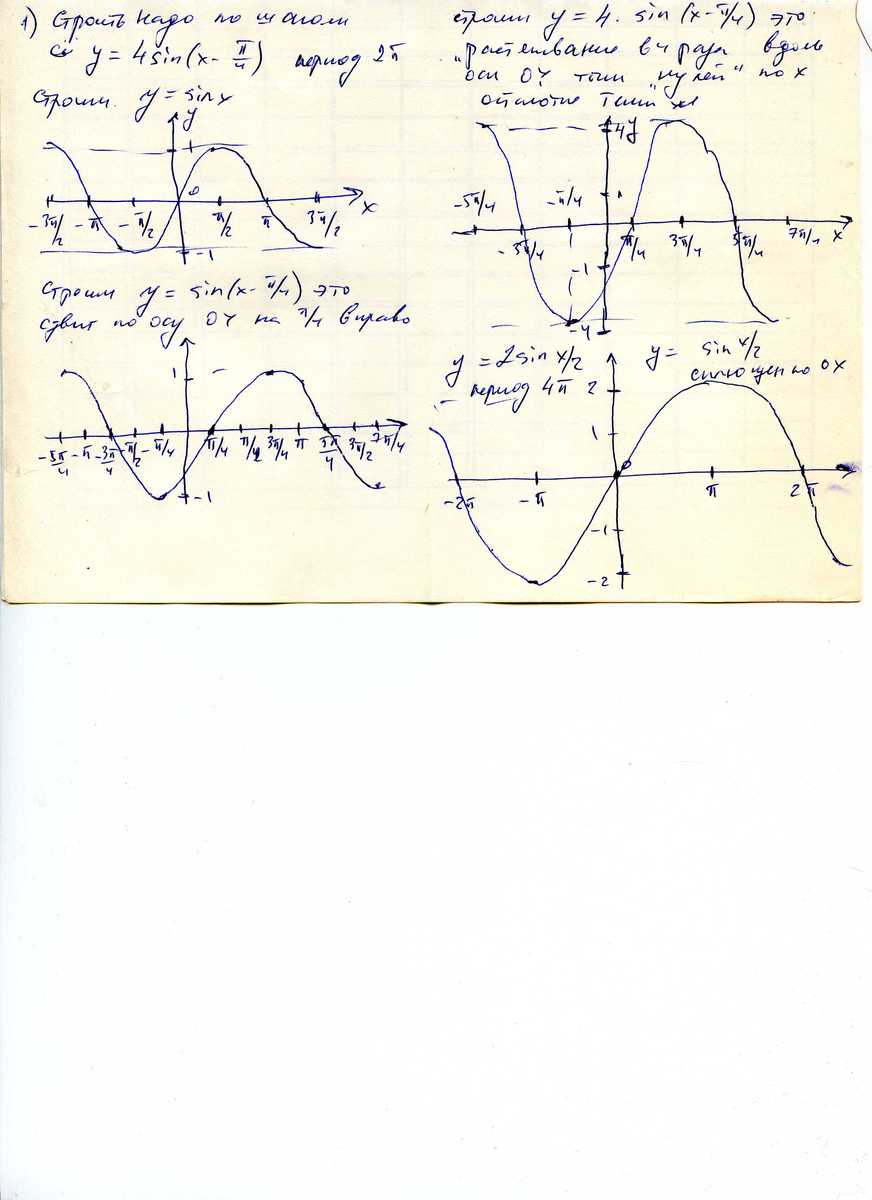 1) Строить надо по шагам
y = 4 sin(x - π/4) период 2π
Строим. y = sin x
y
1
0
-3π/2 -π -π/2 π/2 π 3π/2 x
-1
Строим y = sin(x - π/4) это
сдвиг по осу OY на π/4 вправо
1
-5π/4 -π -3π/4 -π/2 -π/4 π/4 π/2 3π/4 π 5π/4 3π/2 7π/4
-1
строим y = 4 · sin(x - π/4) это
"растягивание в 4 раза вдоль
оси OY "нулей" по x
4 y
-5π/4 -3π/4 -π/4 π/4 3π/4 5π/4 7π/4 x
-1
-4
y = 2 sin x/2 y = sin x/2
период 4π сплющен по OX
2
1
0
-2π -π π 2π
-1
-2